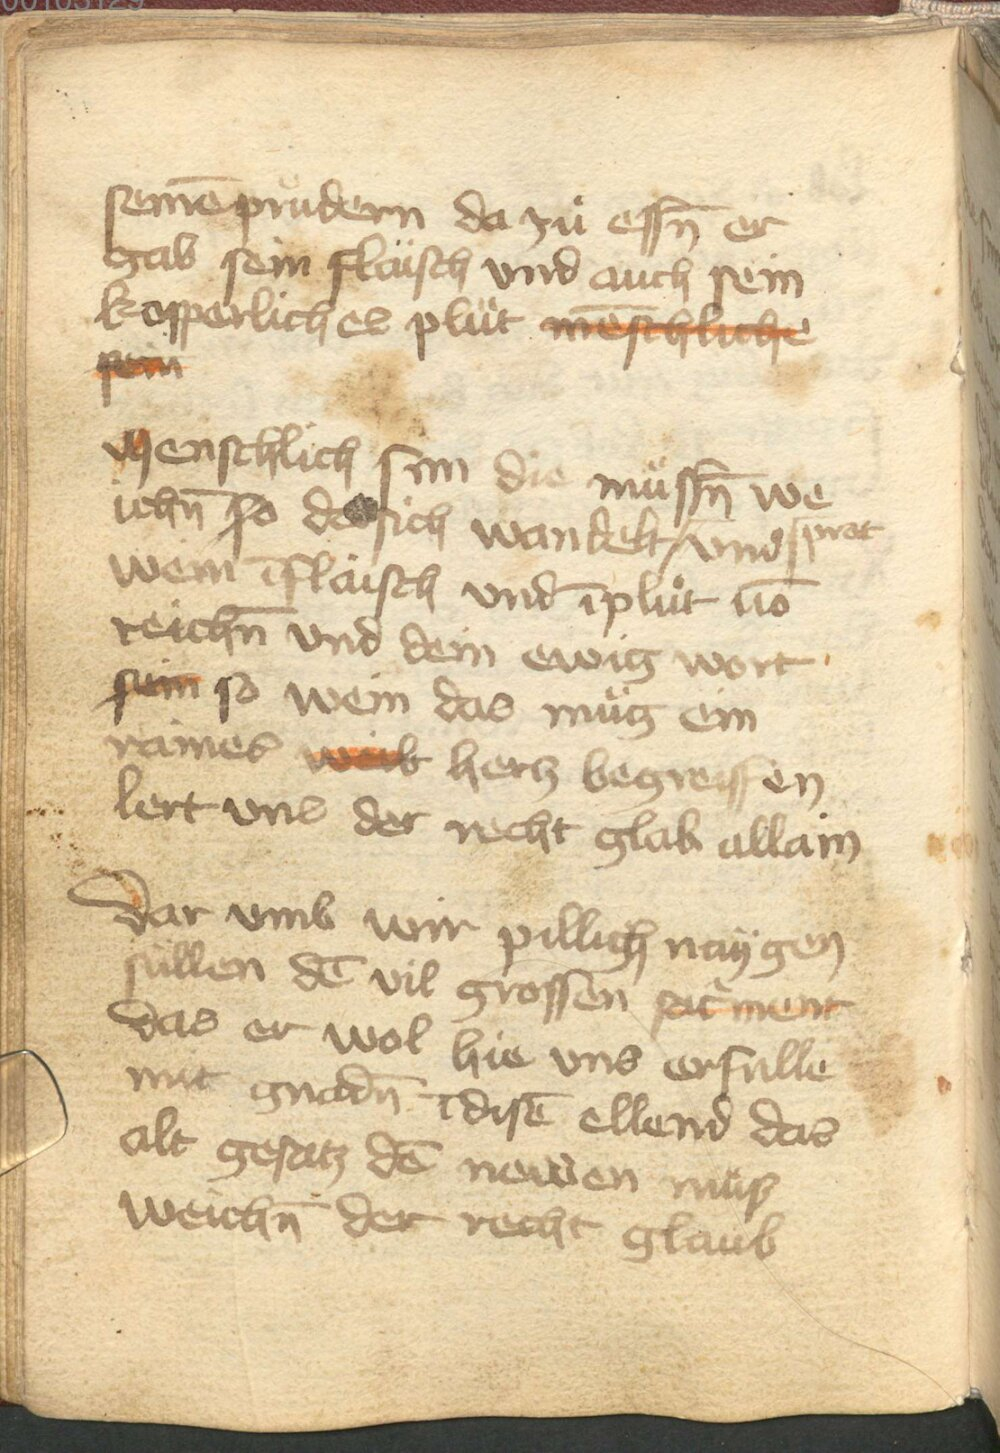 00103129
semē průdern da zů essn̄ er
gab sein flaisch vnd auch sein
kopperlichev plůt mēschliche
sein
Menschlich sinn die müssn̄ we
ichn̄ so der sich wandelt / vnd / prot
wein ī flaisch vnd ī plůt
reichn̄ vnd dein ewig wort
sein so wein das müg ein
raines weib hertz begreiffen
lert vns der recht glab allain
Dar vmb wir pillich naÿgen
süllen dē vil grossen sacrment
das er wol hie vns erfulle
mit gnadn̄ ī disē ellend das
alt gesatz dē newen müß
weichn̄ der recht glaub